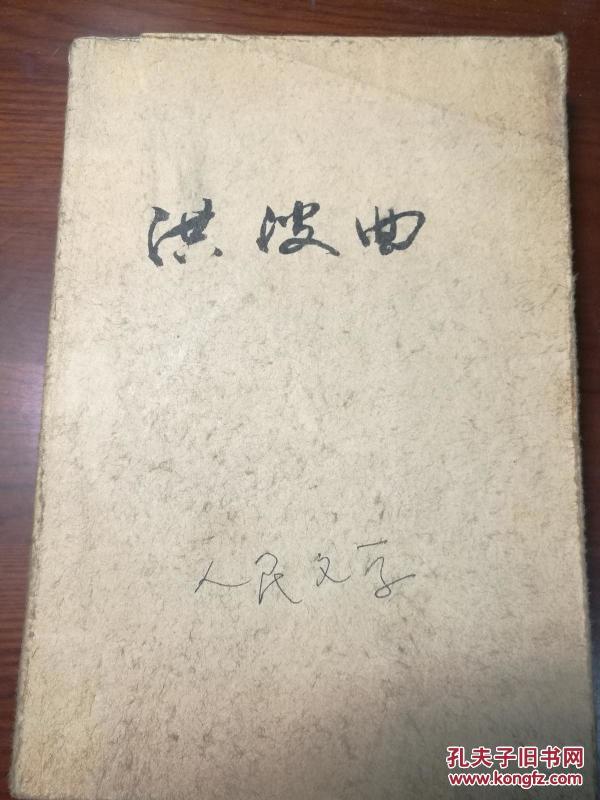 洪波曲
人民文学
孔夫子旧书网
www.kongfz.com